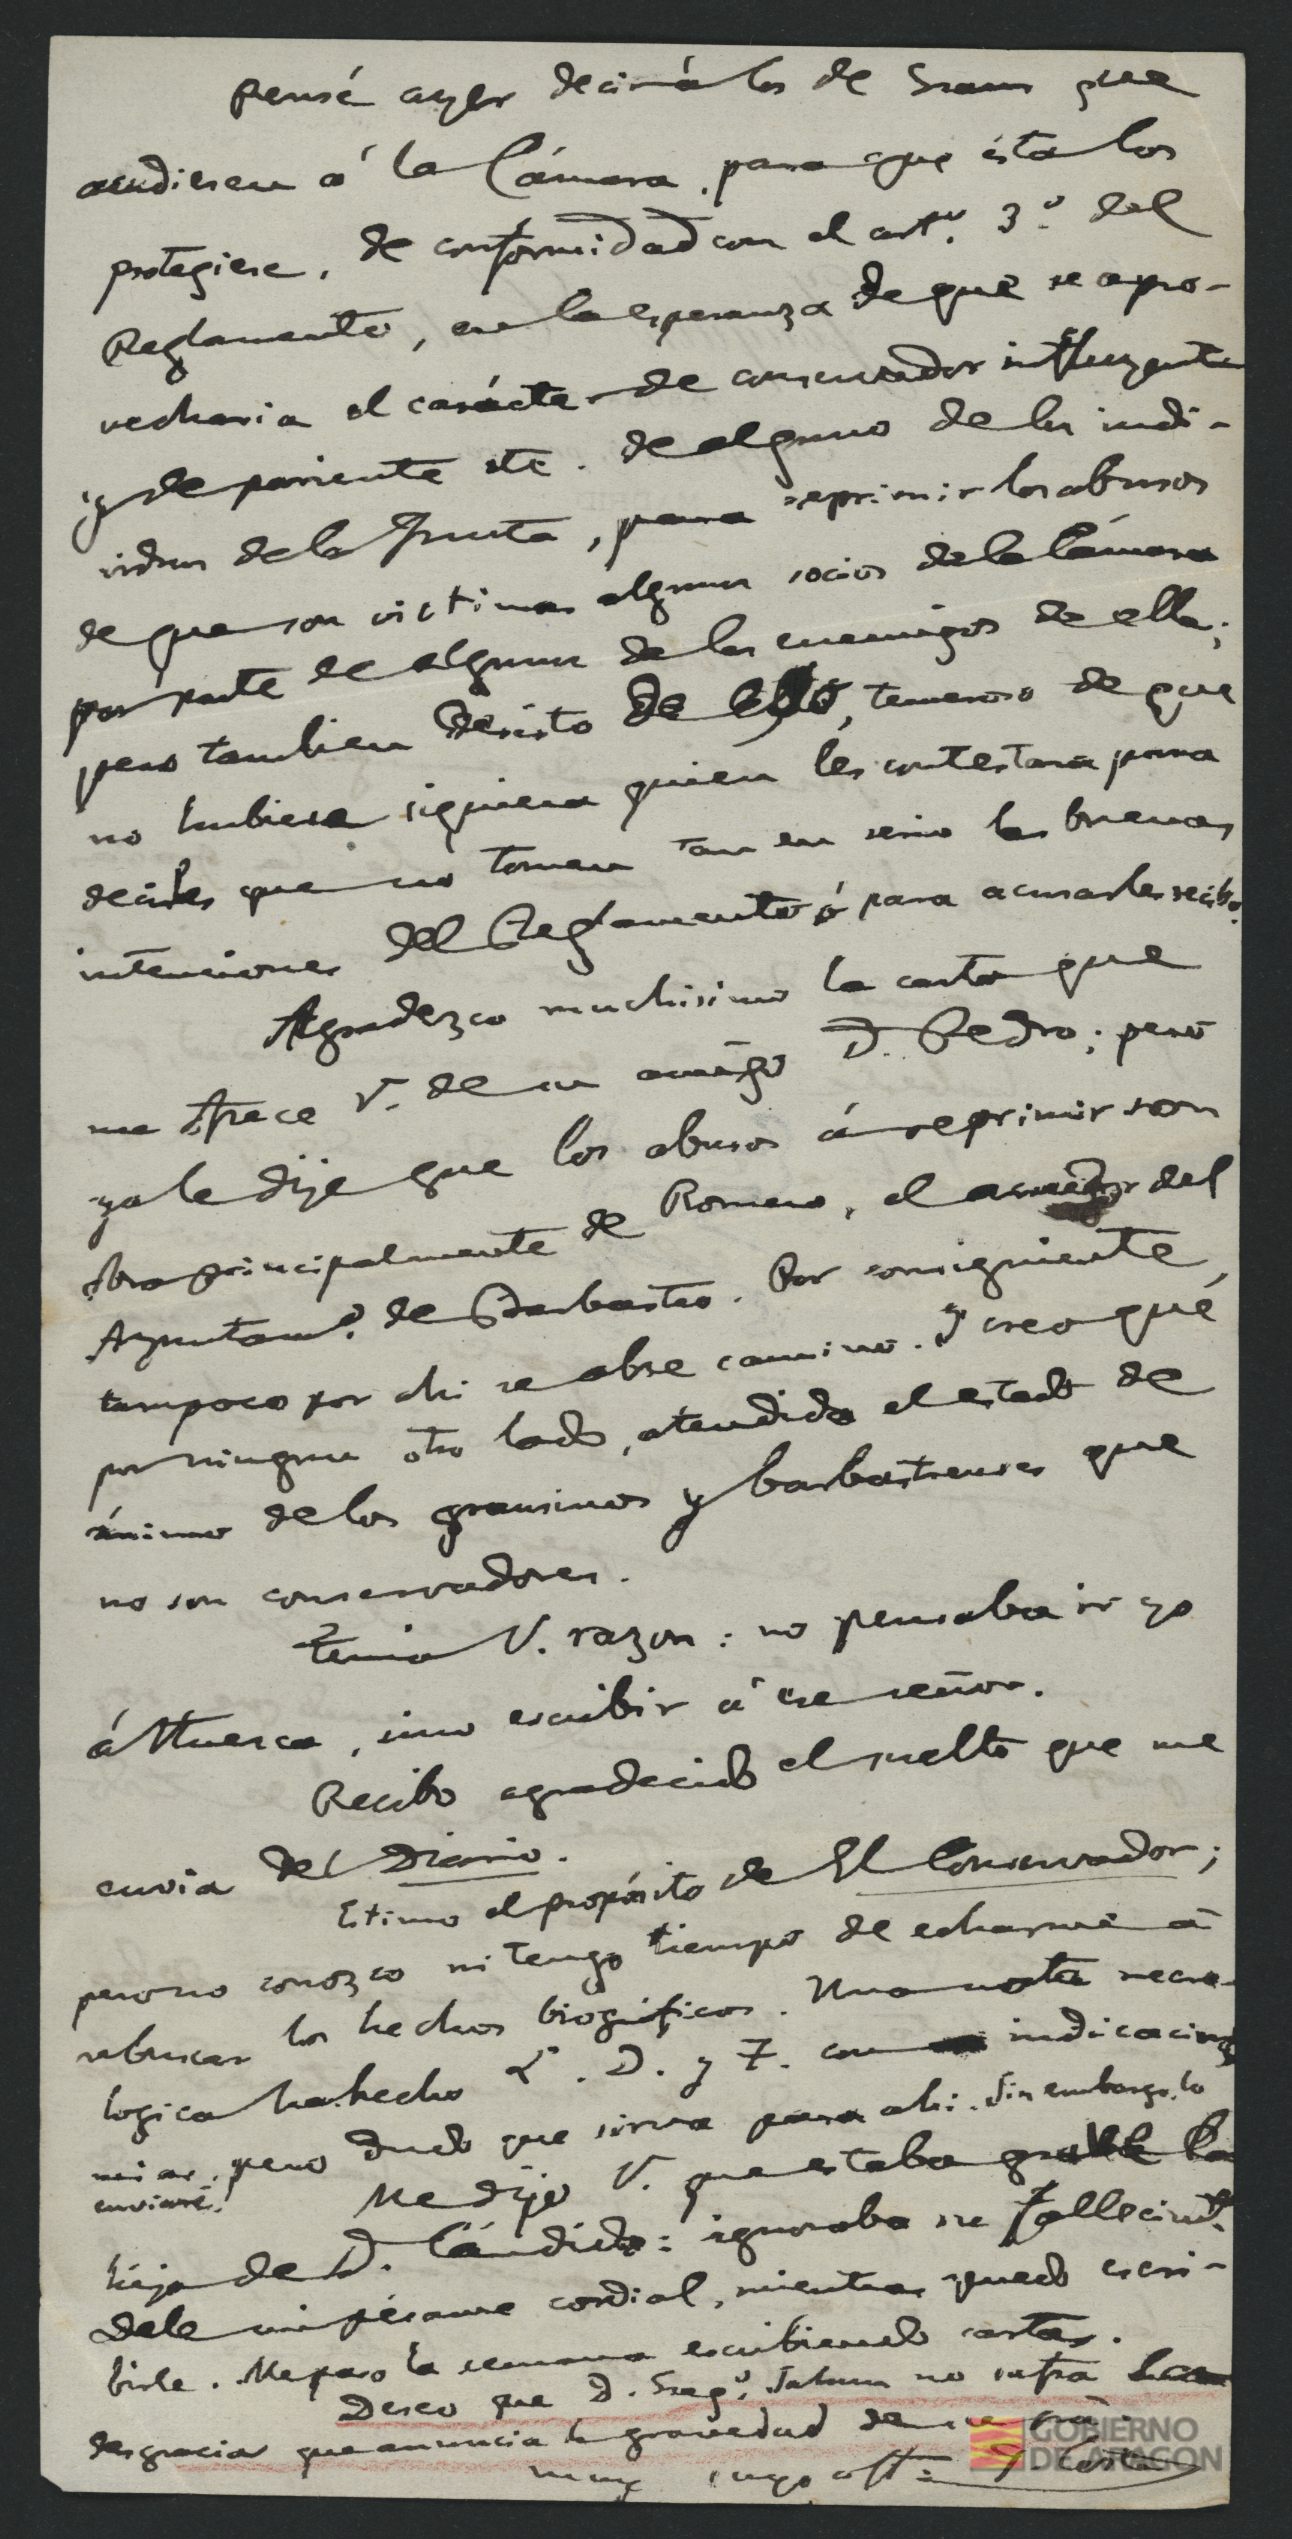 Pensé ayer decir á los de Graus que
acudiesen á la Cámara, para que ésta los
protegiese, de conformidad con el artº. 3.º del
Reglamento, en la esperanza de que se apro-
vecharia el carácter de conservador influyente
y de pariente etc. de alguno de los indi-
viduos de la Junta, para reprimir los abusos
de que son victimas algunos socios de la Cámara
por parte de algunos de los enemigos de ella;
pero tambien desisto de ello, temeroso de que
no hubiese siquiera quien les contestara para
decirles que no tomen tan en serio las buenas
intenciones del Reglamento ó para acusarles recibo.
Agradezco muchisimo la carta que
me ofrece V. de su amigo D. Pedro; pero
ya le dije que los abusos á reprimir son
obra principalmente de Romero, el del
Ayuntamº. de Barbastro. Por consiguiente,
tampoco por ahi se abre camino. Y creo que
por ningun otro lado, atendido el estado de
ánimo de los grausinos y barbastrenses que
no son conservadores.
Tenia V. razon: no pensaba ir yo
á Huesca, sino escribir á ese señor.
Recibo agradecido el suelto que me
envia del Diario.
Estimo el propósito de El Conservador;
pero no conozco ni tengo tiempo de echarme á
rebuscar los hechos biográficos. Una nota necro-
logica ha hecho L. D. y F. con indicaciones
mias, pero dudo que sirva para ahi. Sin embargo, lo
enviaré.
Me dijo V. que estaba grave la
hija de D. Cándido: ignoraba su fallecimtº.
Dele mi pésame cordial, mientras puedo escri-
birle. Me paso la semana escribiendo cartas.
Deseo que D. Gregº. no sufra la
desgracia que anuncia la gravedad de su
muy suyo affº. J. Costa
GOBIERNO
DE ARAGON